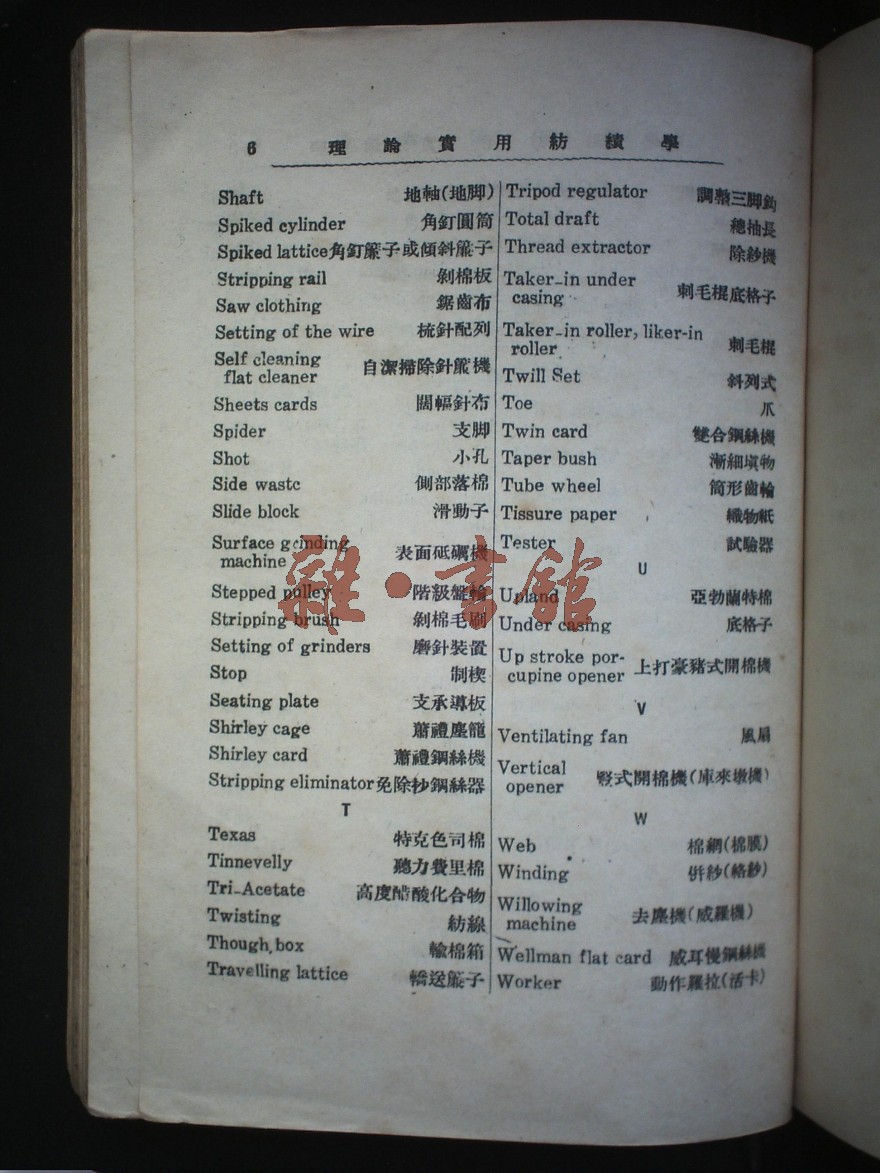 6 理論實用紡績學
Shaft 地軸(地脚)
Spiked cylinder 角釘圓筒
Spiked lattice角釘簾子或傾斜簾子
Stripping rail 剝棉板
Saw clothing 鋸齒布
Setting of the wire 梳針配列
Self cleaning
flat cleaner 自潔掃除針簾機
Sheets cards 闊幅針布
Spider 支脚
Shot 小孔
Side waste 側部落棉
Slide block 滑動子
Surface grinding
machine 表面砥礪機
Stepped pulley 階級盤輪
Stripping brush 剝棉毛刷
Setting of grinders 磨針裝置
Stop 制楔
Seating plate 支承導板
Shirley cage 蕭禮塵籠
Shirley card 蕭禮鋼絲機
Stripping eliminator免除抄鋼絲器
T
Texas 特克色司棉
Tinnevelly 聽力費里棉
Tri-Acetate 高度醋酸化合物
Twisting 紡線
Though box 輸棉箱
Travelling lattice 轎送簾子
Tripod regulator 調整三脚鈎
Total draft 總抽長
Thread extractor 除紗機
Taker-in under
casing 刺毛棍底格子
Taker-in roller, liker-in
roller 刺毛棍
Twill Set 斜列式
Toe 爪
Twin card 雙合鋼絲機
Taper bush 漸細塡物
Tube wheel 筒形齒輪
Tissure paper 織物紙
Tester 試驗器
U
Upland 亞勃蘭特棉
Under casing 底格子
Up stroke por-
cupine opener 上打豪豬式開棉機
V
Ventilating fan 風扇
Vertical
opener 竪式開棉機(庫來墩機)
W
Web 棉網(棉膜)
Winding 併紗(絡紗)
Willowing
machine 去塵機(威羅機)
Wellman flat card 威耳慢鋼絲機
Worker 動作羅拉(活卡)
雜·書館